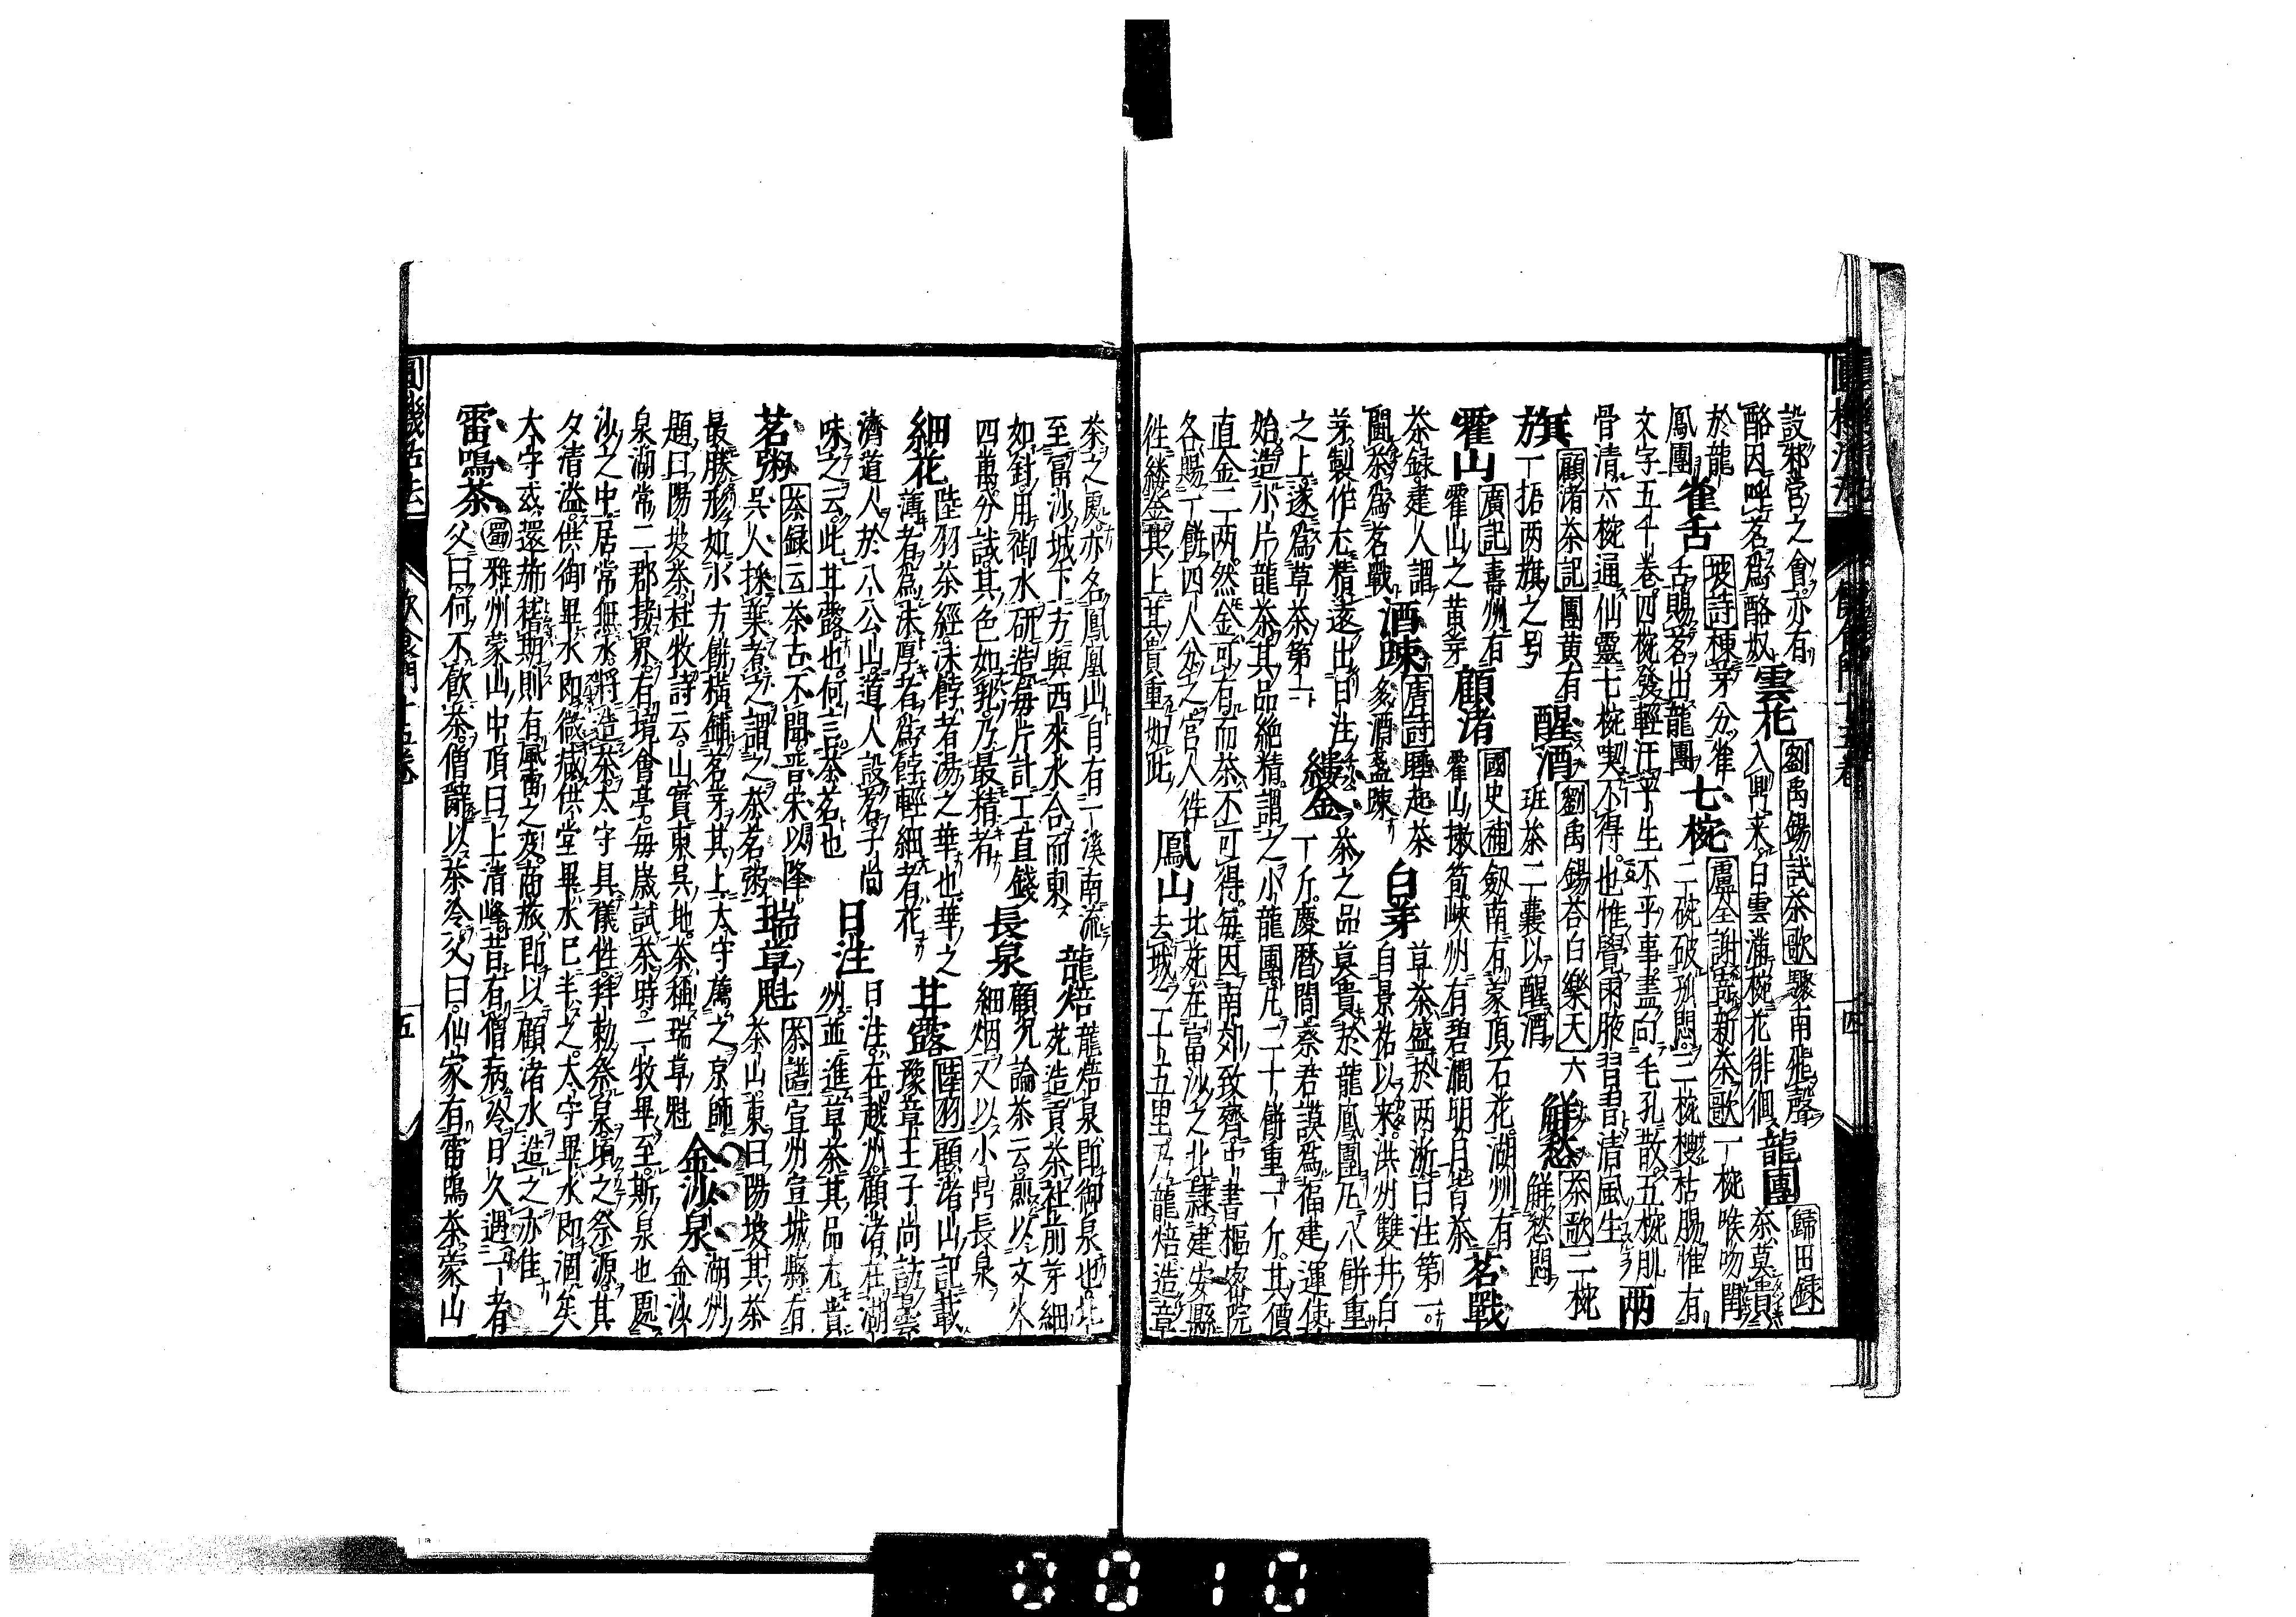 設邪営之會亦有
酪因呼茗爲酪奴
雲花
劉禹錫試茶歌
驟雨聲
入興来白雲滿椀花徘徊
龍團
歸田録
茶莫貴
於龍
鳳團
雀舌
坡詩
揀芽分雀
舌賜茗出龍團
七椀
盧仝謝新茶歌
一椀喉吻閏
二碗破孤悶三椀枯腸惟有
文字五千卷四椀發輕汗平生不平事盡向毛孔散五椀肌
骨清六椀通仙靈七椀喫不得也惟覺兩腋習習清風生
两
旗
顧渚茶記
團黄有
一拓两旗之号
醒酒
劉禹錫答白樂天
六
班茶二囊以醒酒
鮮愁
茶歌
二椀
鮮愁悶
霍山
廣記
壽州有
霍山之黄芽
顧渚
國史補
劔南有蒙頂石花湖州有
霍山嫩筍峡州有碧澗明月皆茶
茗戰
茶録建人謂
鬪茶爲茗戰
酒踈
唐詩
睡起茶
多酒盞踈
白芽
草茶盛於两浙日注第一
自景祐以来洪州雙井白
芽製作尤精遂出日注
之上遂爲草茶第一
縷金
茶之品莫貴於龍鳳團凡八餅重
一斤慶暦間蔡君謨爲福建運使
始造小片龍茶其品絶精謂之小龍團凡二十餅重一斤其價
直金二两然金可有而茶不可得毎因南郊致齋中書樞密院
各賜一餅四人分之官人件
件縷金其上其貴重如此
鳳山
北苑在富沙之北隷建安縣
去城二十五里乃龍焙造章
茶之處亦名鳳凰山自有一溪南流
至富沙城下方與西来水合而東
龍焙
龍焙泉即御泉也北
苑造貢茶社前芽細
如針用御水研造毎片計工直錢
四萬分試其色如乳乃最精者
長泉
顧况論茶云煎以文火
細烟又以小鼎長泉
細花
陸羽茶經沫餑者湯之華也華之
薄者爲沫厚者爲餑輕細者花
甘露
陸羽
顧渚山記載
豫章王子尚訪曇
濟道人於八公山道人設茗子尚
味之云此甘露也何言茶茗也
日注
日注在越州顧渚在湖
州並進草茶其品尤貴
茗粥
茶録云
茶古不聞晋宋以降
呉人採葉煮之謂之茶茗粥
瑞草魁
茶譜
宣州宣城縣有
茶山東曰陽坡其茶
最勝形如小方餅横鋪茗芽其上太守薦之京師
題曰陽坡茶杜牧詩云山實東呉地茶稱瑞草魁
金沙泉
湖州
金沙
泉湖常二郡接界有境會亭毎歳試茶時二牧畢至斯泉也處
沙之中居常無水將造茶太守具儀性拜勅祭泉頃之祭源其
夕清溢供御畢水即微減供堂畢水已半之太守畢水即涸矣
太守或還施稽期則有風雷之変商旅即以顧渚水造之亦惟
雷鳴茶
蜀
雅州蒙山中頂曰上清峰昔有僧病冷日久遇一老
父曰何不飲茶僧辭以茶冷父曰仙家有雷鳴茶蒙山
五
0010